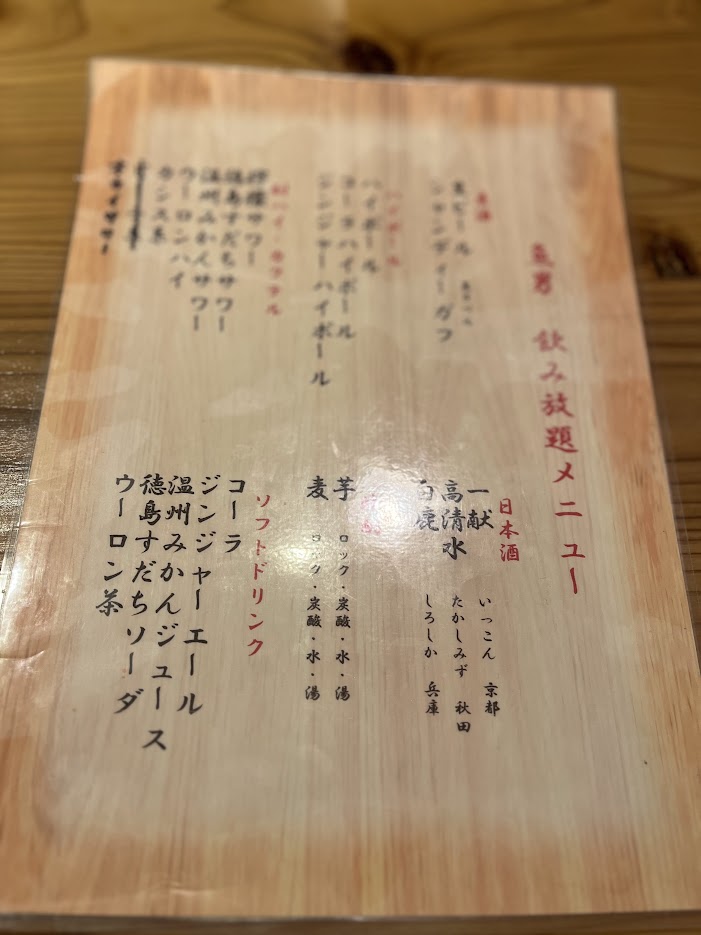 魚男 飲み放題メニュー
生ビール
シャンディーガフ
ハイボール
ハイボール
コーラハイボール
ジンジャーハイボール
酎ハイ・カクテル
檸檬サワー
徳島すだちサワー
温州みかんサワー
ウーロンハイ
カシス系
日本酒
一献 いっこん 京都
高清水 たかしみず 秋田
白鹿 しろしか 兵庫
芋 ロック・炭酸・水・湯
麦 ロック・炭酸・水・湯
ソフトドリンク
コーラ
ジンジャーエール
温州みかんジュース
徳島すだちソーダ
ウーロン茶